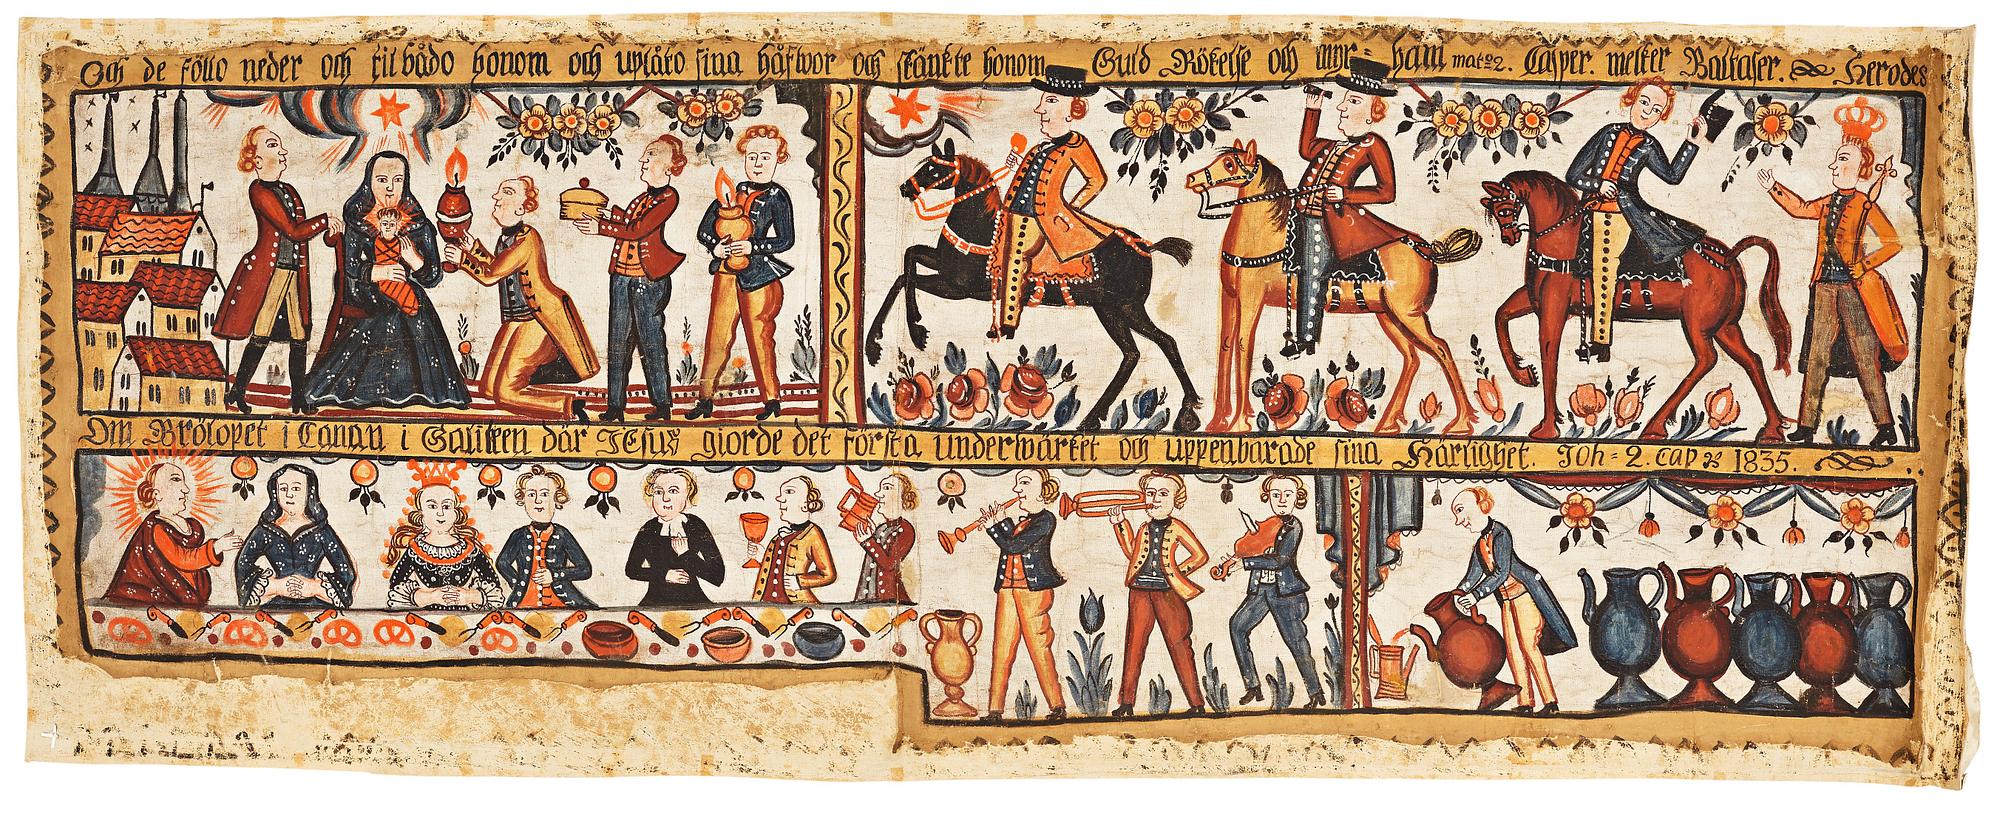 Och de föllo neder och tilbådo honom och uplåto sina håfwor och skänkte honom Guld Rökelse och myr=ham mat=2. Casper. melker Baltaser. Herodes
Om Brölopet i Canan i Galileen där JEsus giorde det första underwärket och uppenbarade sina Härlighet. Joh=2. Cap 1835.